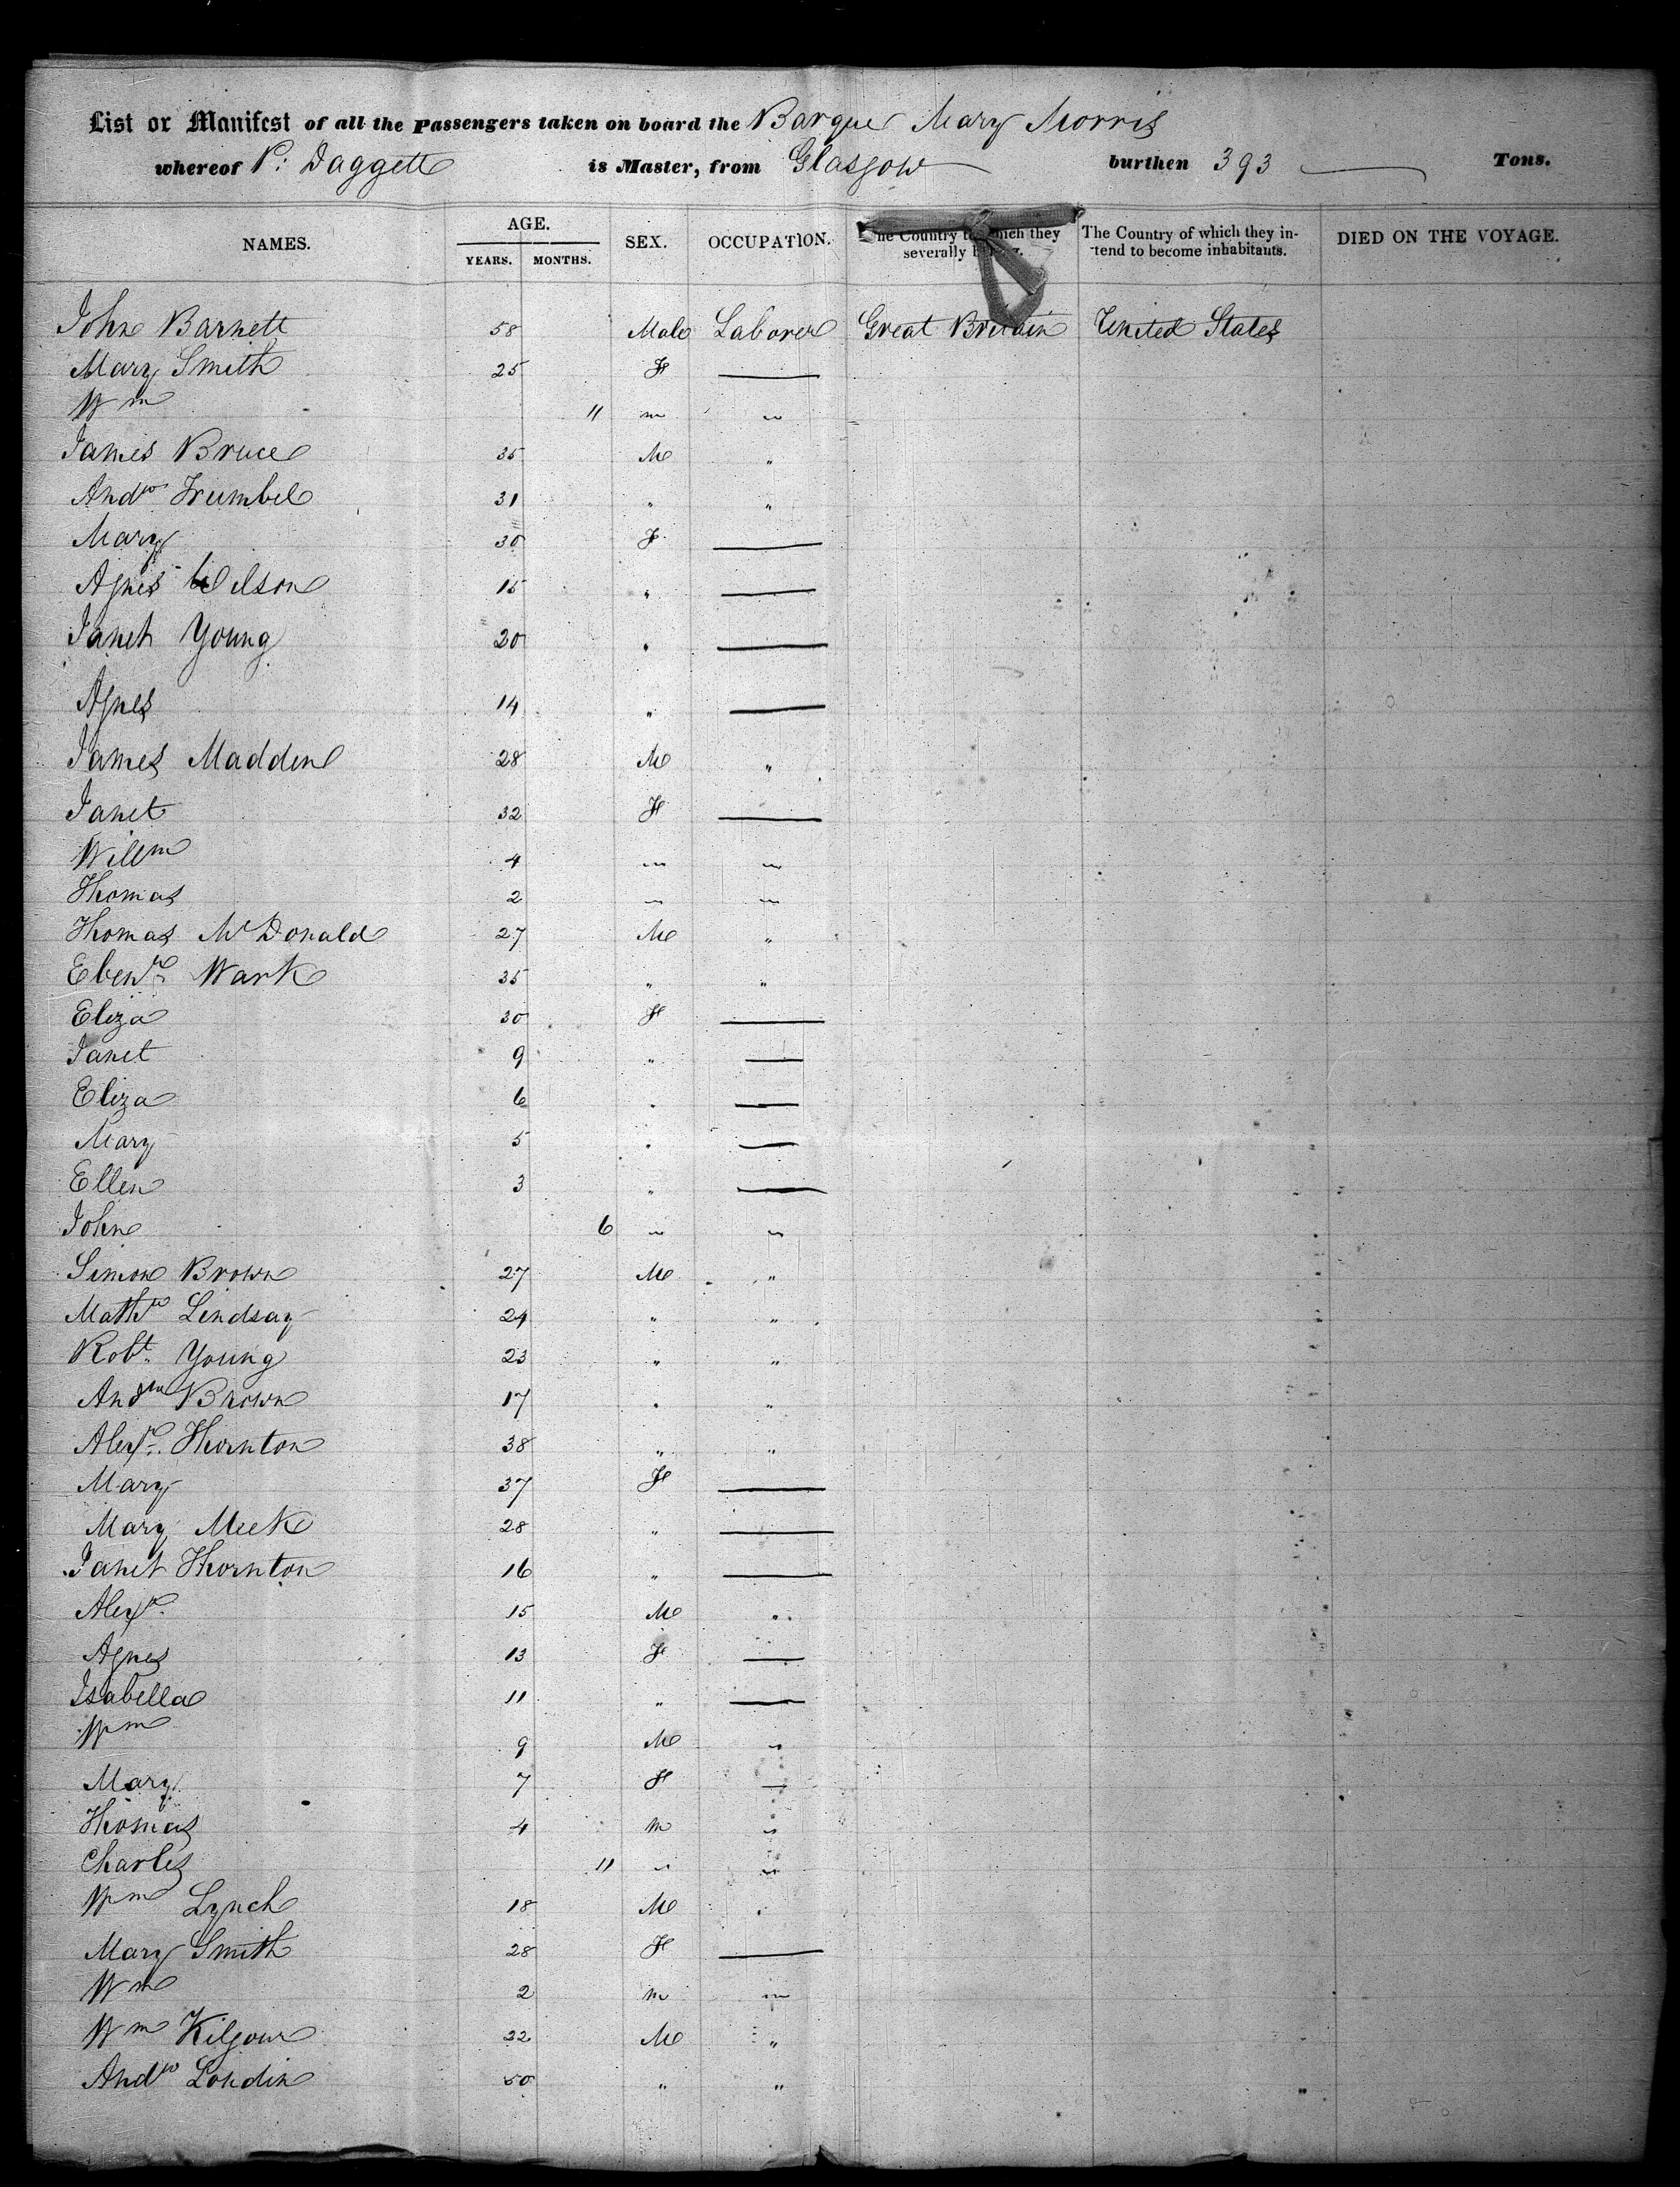 List or Manifest of all the Passengers taken on board the Barque Mary Morris
whereof P: Daggett is Master, from Glasgow burthen 393 Tons.
NAMES. AGE. YEARS. MONTHS. SEX. OCCUPATION. The Country to which they severally belong. The Country of which they intend to become inhabitants. DIED ON THE VOYAGE.
John Barnett 58 Male Laborer Great Britain United States
Mary Smith 25 F —
Wm 11 m "
James Bruce 35 M "
Andw Trumbel 31 " "
Mary 30 F —
Agnes Wilson 15 " —
Janet Young 20 " —
Agnes 14 " —
James Madden 28 M "
Janet 32 F —
Willm 4 " "
Thomas 2 " "
Thomas McDonald 27 M "
Ebenr Wark 35 " "
Eliza 30 F —
Janet 9 " —
Eliza 6 " —
Mary 5 " —
Ellen 3 " —
John 6 " "
Simon Brown 27 M "
Mathw Lindsay 24 " "
Robt. Young 23 " "
Andw Brown 17 " "
Alexr. Thornton 38 " "
Mary 37 F —
Mary Meek 28 " —
Janet Thornton 16 " —
Alexr. 15 M "
Agnes 13 F —
Isabella 11 " —
Wm 9 M "
Mary 7 F —
Thomas 4 m "
Charles 11 " "
Wm Lynch 18 M "
Mary Smith 28 F —
Wm 2 m "
Wm Kilgour 22 M "
Andw Londin 50 " "